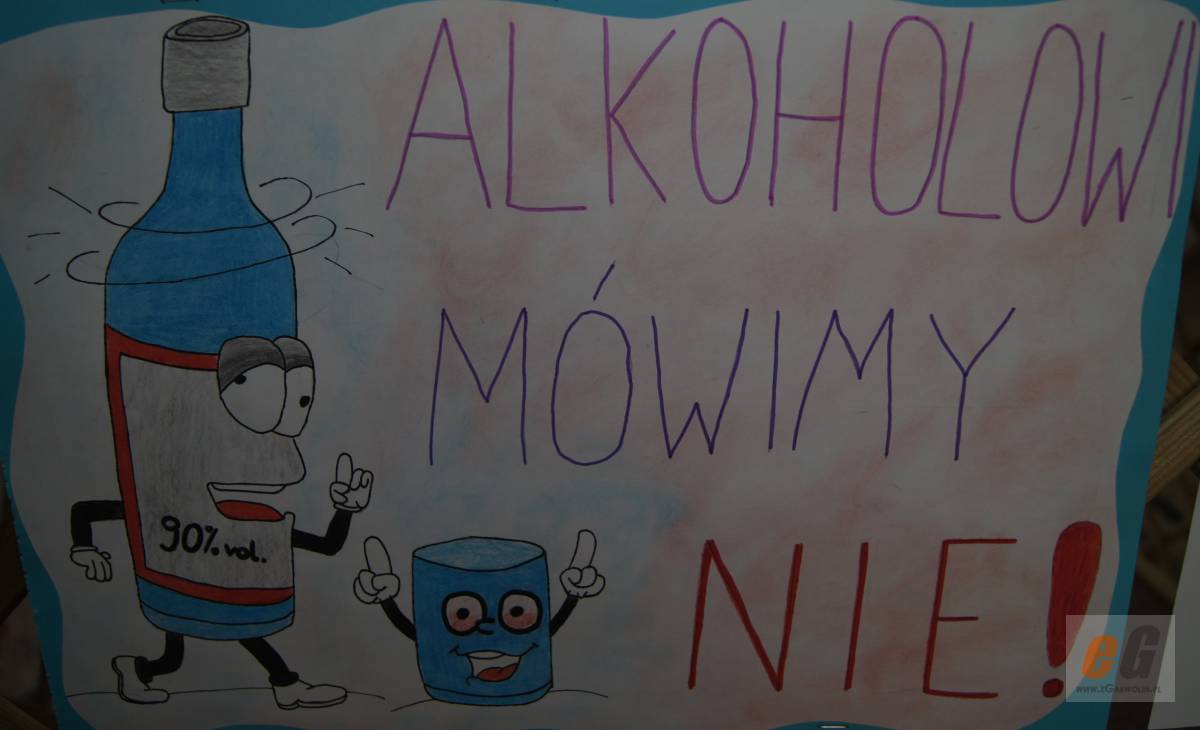 ALKOHOLOWI
MÓWIMY
NIE!
90% vol.
eG
WWW.EGARWOLIN.PL